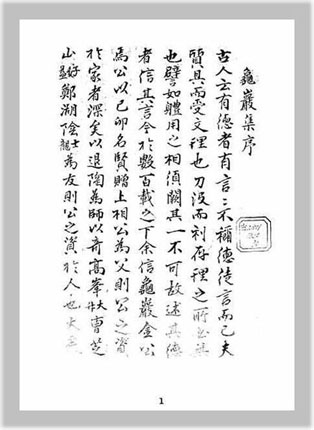 龜巖集序
古人云有德者有言〻不稱德徒言而已夫
質具而受文理也刀没而利存理之所
也譬如體用之相須闕其一不可故述其德
者信其言今於數百載之下余信龜巖金公
焉公以己卯名賢贈上相公為父則公之資
於家者深矣以退陶為師以奇高峯大升曹芝
山好益鄭湖陰士龍為友則公之資於人也大
1